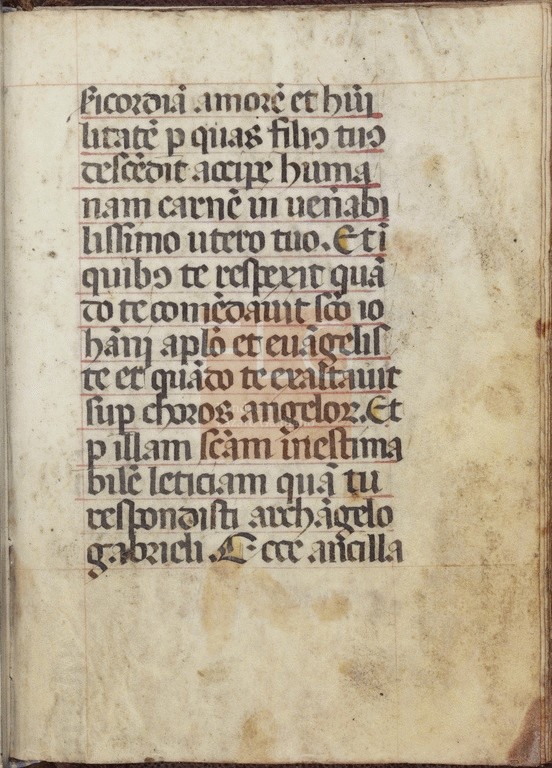 sicordiā amorē et hūi
litatē p quas filiꝰ tuꝰ
descēdit accipe huma
nam carnē in ueñabi
lissimo utero tuo. Et ī
quibꝰ te respexit quā
do te comēdauit sc̄o io
hāni aplō et euāgelis
te et quādo te exaltauit
sup choros angeloꝝ. Et
p illam sc̄am inestima
bilē leticiam quā tu
respondisti archāgelo
gabrieli. Ecce añcilla